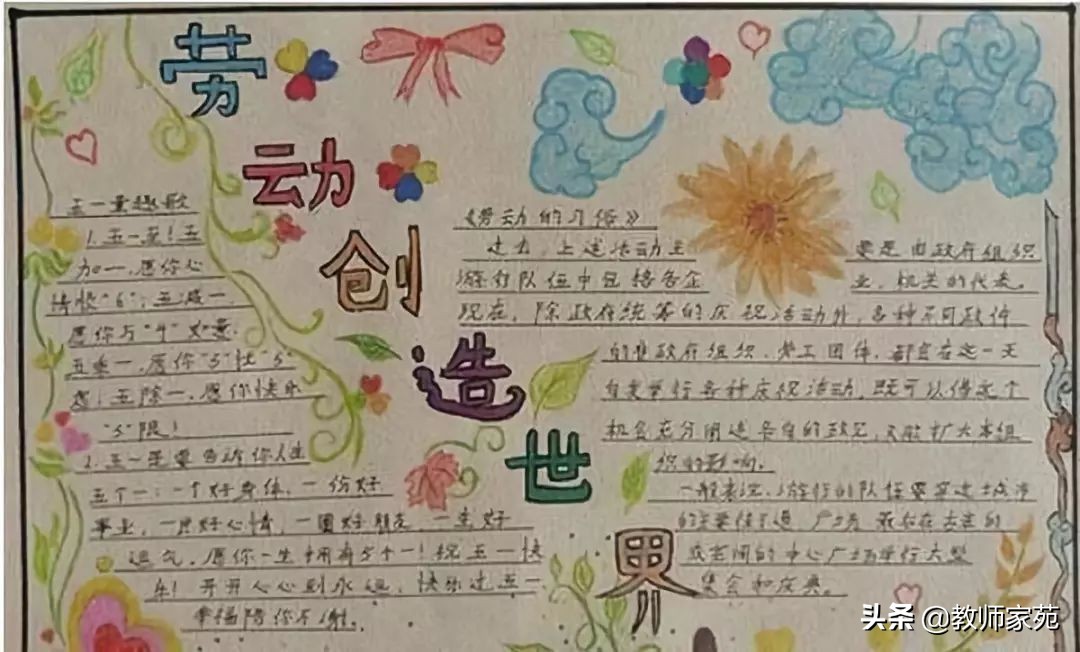 劳动创造世界
五一童趣歌
1.五一至!五
加一,愿你心
情愉"6";五减一,
愿你与"4"
五乘一,愿你"5"快"5"
意;五除一,愿你快乐
"5"限!
2.五一是要告诉你人生
五个一:一个好身体,一份好
事业,一片好心情,一圈好朋友,一生好
运气。愿你一生拥有5个一!祝五一快
乐!开开心心到永远,快乐过五一
幸福陪你不谢。
《劳动的习俗》
过去,上述活动主要是由政府组织
游行队伍中包括各企业,机关的代表。
现在,除政府统筹的庆祝活动外,各种不同政件
的非政府组织、劳工团体,都会在这一天
自发举行各种庆祝活动,既可以借这个
机会充分阐述各自的政见,又能扩大本组
织的影响。
一般来说,游行的队伍要穿过城市
的主要街道、广场,最后在
的中心广场举行大型
集会和庆典。
头条 @教师家苑